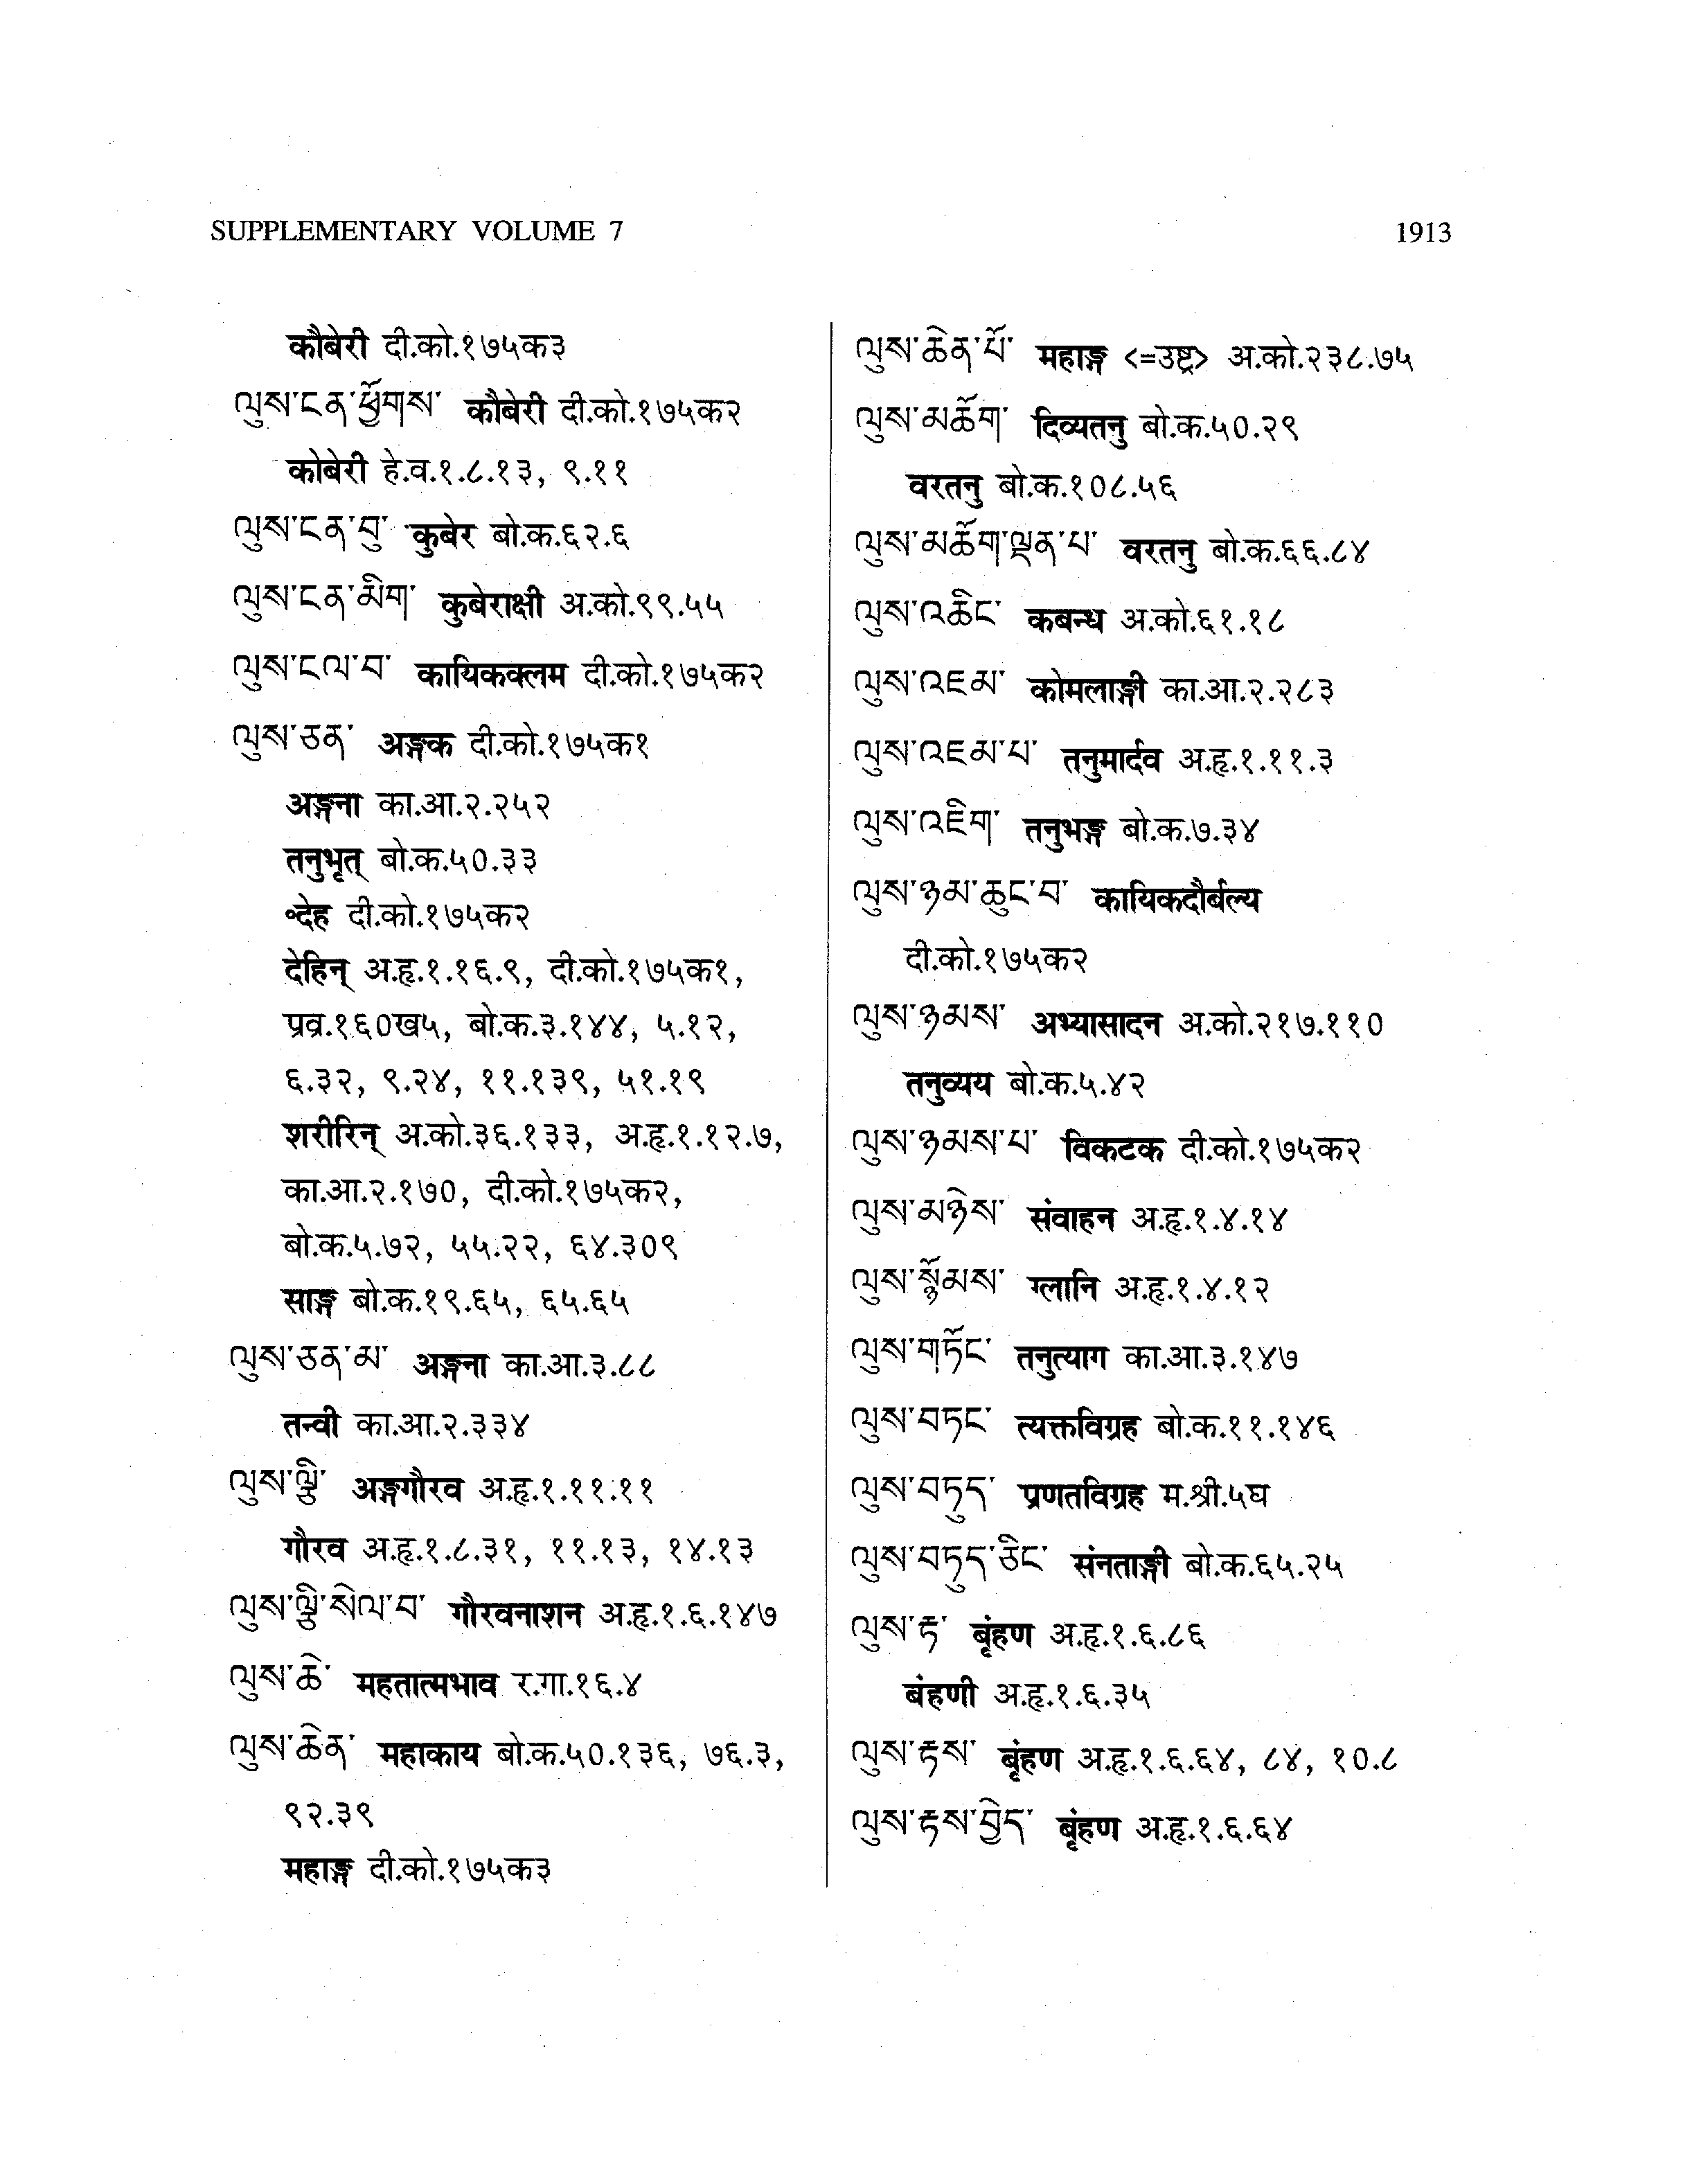 SUPPLEMENTARY VOLUME 7 1913
कौबेरी दी.को.१७५क३
ལུས་ངན་ཕྱོགས་ कौबेरी दी.को.१७५क२
कोबेरी हे.व.१.८.१३, ९.११
ལུས་ངན་བུ་ कुबेर बो.क.६२.६
ལུས་ངན་མིག་ कुबेराक्षी अ.को.९९.५५
ལུས་ངལ་བ་ कायिकक्लम दी.को.१७५क२
ལུས་ཅན་ अङ्गक दी.को.१७५क१
अङ्गना का.आ.२.२५२
तनुभृत् बो.क.५०.३३
॰देह दी.को.१७५क२
देहिन् अ.हृ.१.१६.९, दी.को.१७५क१,
प्रव्र.१६०ख५, बो.क.३.१४४, ५.१२,
६.३२, ९.२४, ११.१३९, ५१.१९
शरीरिन् अ.को.३६.१३३, अ.हृ.१.१२.७,
का.आ.२.१७०, दी.को.१७५क२,
बो.क.५.७२, ५५.२२, ६४.३०९
साङ्ग बो.क.१९.६५, ६५.६५
ལུས་ཅན་མ་ अङ्गना का.आ.३.८८
तन्वी का.आ.२.३३४
ལུས་ལྕི་ अङ्गगौरव अ.हृ.१.११.११
गौरव अ.हृ.१.८.३१, ११.१३, १४.१३
ལུས་ལྕི་སེལ་བ་ गौरवनाशन अ.हृ.१.६.१४७
ལུས་ཆེ་ महतात्मभाव र.गा.१६.४
ལུས་ཆེན་ महाकाय बो.क.५०.१३६, ७६.३,
९२.३९
महाङ्ग दी.को.१७५क३
ལུས་ཆེན་པོ་ महाङ्ग <=उष्ट्र> अ.को.२३८.७५
ལུས་མཆོག་ दिव्यतनु बो.क.५०.२९
वरतनु बो.क.१०८.५६
ལུས་མཆོག་ལྡན་པ་ वरतनु बो.क.६६.८४
ལུས་འཆིང་ कबन्ध अ.को.६१.१८
ལུས་འཇམ་ कोमलाङ्गी का.आ.२.२८३
ལུས་འཇམ་པ་ तनुमार्दव अ.हृ.१.११.३
ལུས་འཇིག་ तनुभङ्ग बो.क.७.३४
ལུས་ཉམ་ཆུང་བ་ कायिकदौर्बल्य
दी.को.१७५क२
ལུས་ཉམས་ अभ्यासादन अ.को.२१७.११०
तनुव्यय बो.क.५.४२
ལུས་ཉམས་པ་ विकटक दी.को.१७५क२
ལུས་མཉེས་ संवाहन अ.हृ.१.४.१४
ལུས་སྙོམས་ ग्लानि अ.हृ.१.४.१२
ལུས་གཏོང་ तनुत्याग का.आ.३.१४७
ལུས་བཏང་ त्यक्तविग्रह बो.क.११.१४६
ལུས་བཏུད་ प्रणतविग्रह म.श्री.५घ
ལུས་བཏུད་ཅིང་ संनताङ्गी बो.क.६५.२५
ལུས་རྟ་ बृंहण अ.हृ.१.६.८६
बंहणी अ.हृ.१.६.३५
ལུས་རྟས་ बृंहण अ.हृ.१.६.६४, ८४, १०.८
ལུས་རྟས་བྱེད་ बृंहण अ.हृ.१.६.६४